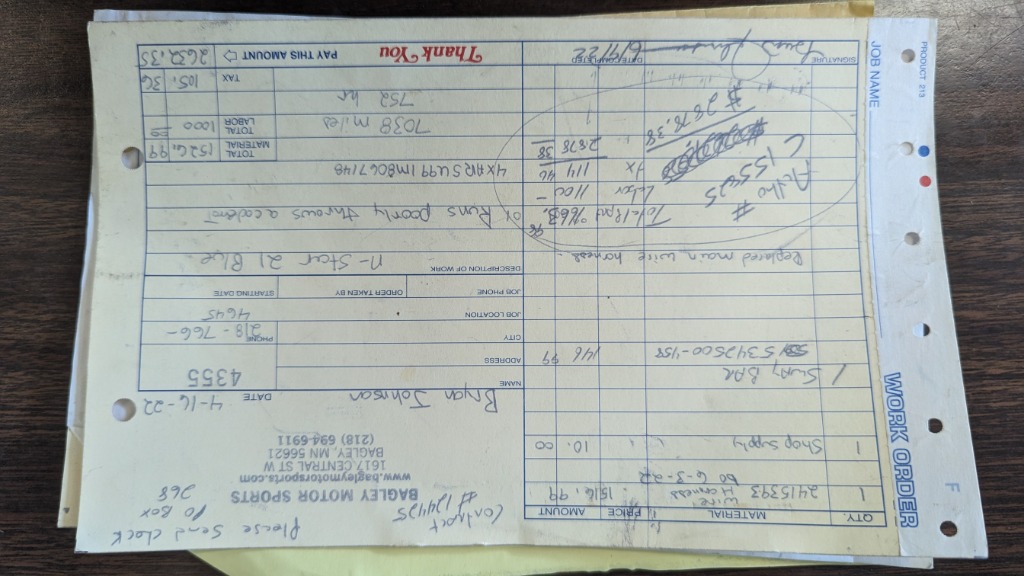 PRODUCT 213
JOB NAME
WORK ORDER
F
Please Send check
PO Box
268
Contract
#124425
BAGLEY MOTOR SPORTS
www.bagleymotorsports.com
1617 CENTRAL ST W
BAGLEY, MN 56621
(218) 694-6911
DATE 4-16-22
Bryan Johnson
NAME
4355
ADDRESS
CITY
PHONE 218-766-
4645
JOB LOCATION
JOB PHONE
ORDER TAKEN BY
STARTING DATE
DESCRIPTION OF WORK
N-Star 21 Blue
Runs poorly throws a code
4XARSU991M8067148
7038 miles
752 hr
TOTAL MATERIAL 1526.99
TOTAL LABOR 1000 00
TAX 105.36
Thank You
PAY THIS AMOUNT 2632.35
QTY. MATERIAL PRICE AMOUNT
1 2415393 Wire Harness 1516.99
6-3-22
1 Shop Supply 10.00
1 Sway BAR
5342500-458 146 99
Replaced main wire harness
Total
Labor 1100 -
Tx 114 40
2878 38
Autho #
C 155425
$2878.38
SIGNATURE
DATE COMPLETED 6/9/22